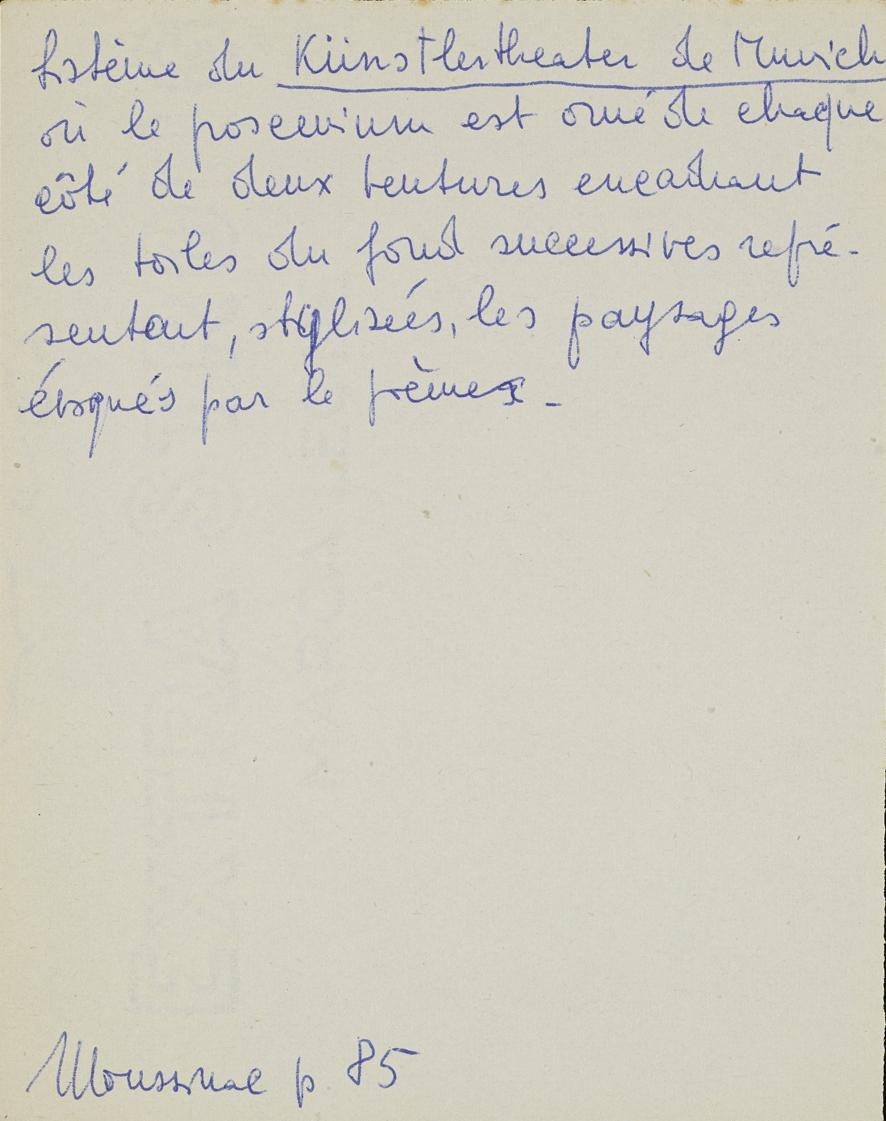 Sistème du Künstlertheater de Munich
où le poscenium est orné de chaque
côté de deux tentures encadrant
les toiles du fond successives repré-
sentant, stylisées, les paysages
évoqués par le poème -
Moussinac p 85